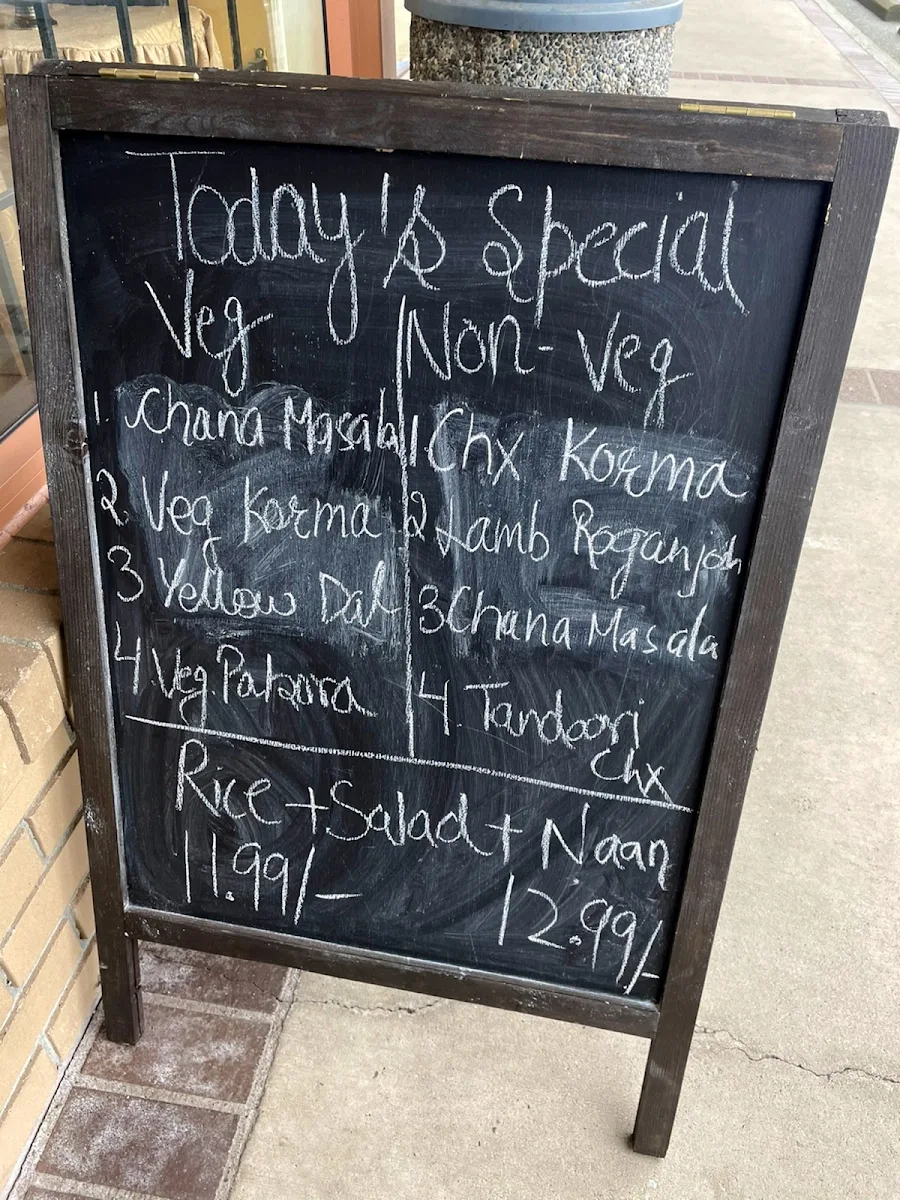 Today's Special
Veg
1. Chana Masala
2. Veg Korma
3 Yellow Dal
4. Veg Pakora
Non-Veg
1 Chx Korma
2 Lamb Roganjosh
3 Chana Masala
4. Tandoori
Chx
Rice + Salad + Naan
11.99/-
12.99/-